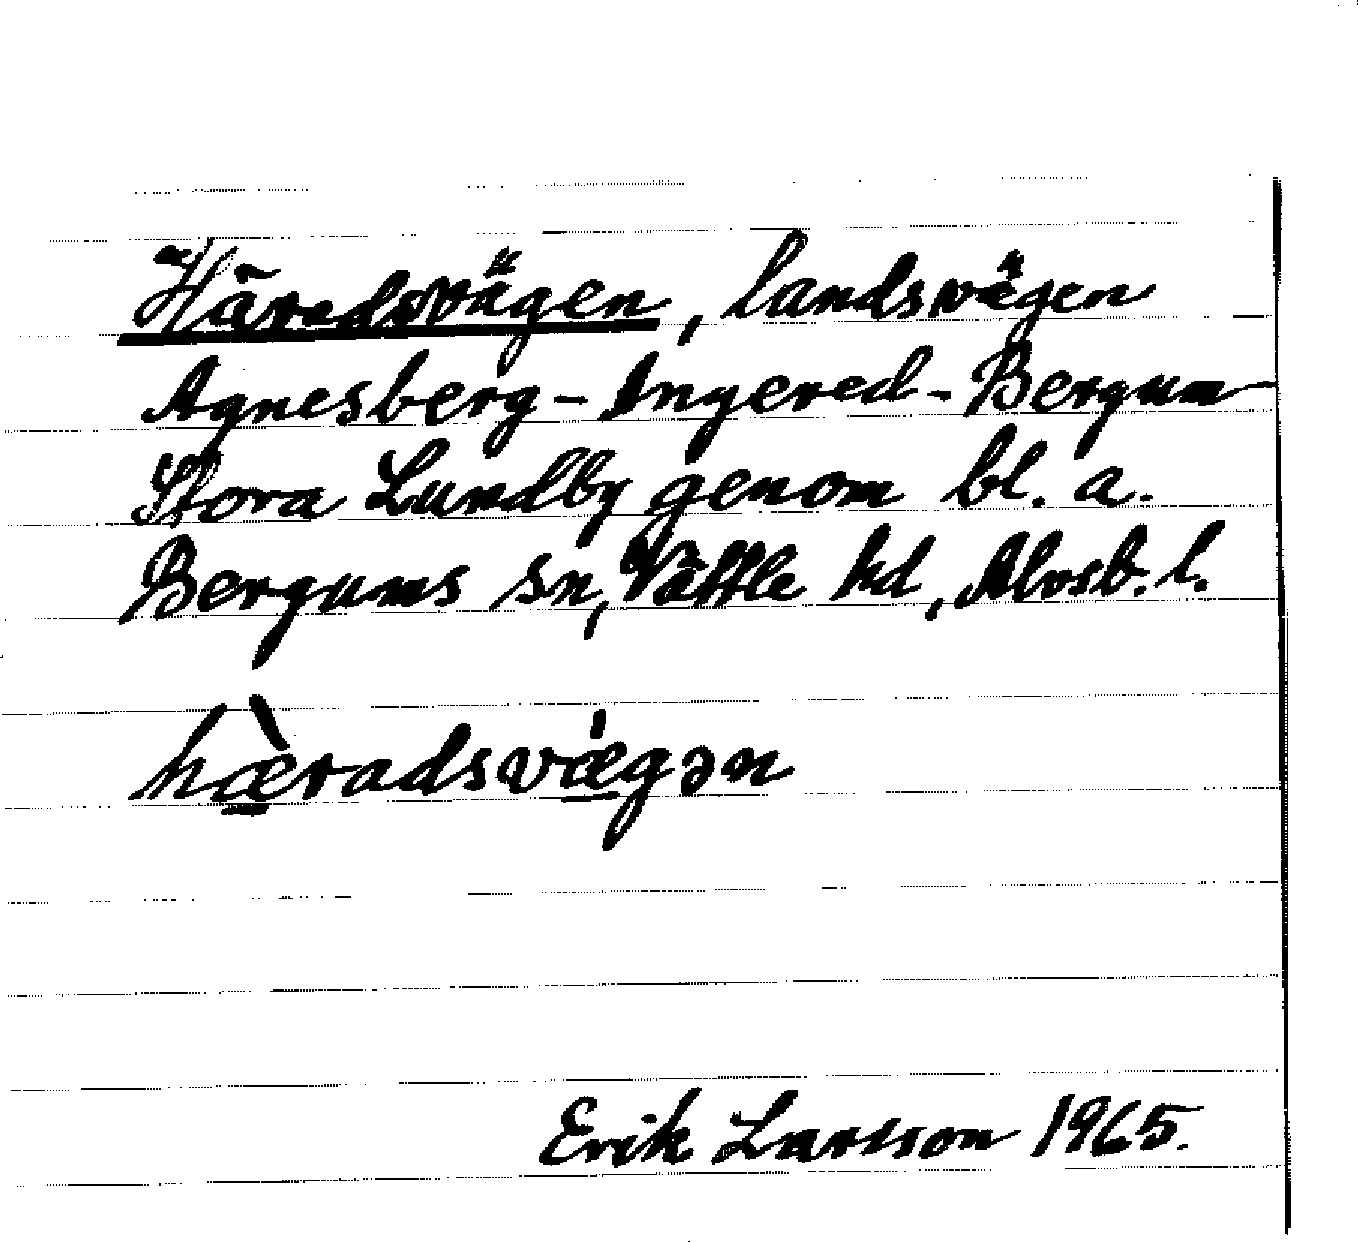 Häradsvägen, landsvägen
Agnesberg-Ingered-Bergum-
Stora Lundby genom bl. a.
Bergums sn, Vättle hd, Älvsb. l.
hæ̀radsvæ̍gən
Erik Larsson 1965.